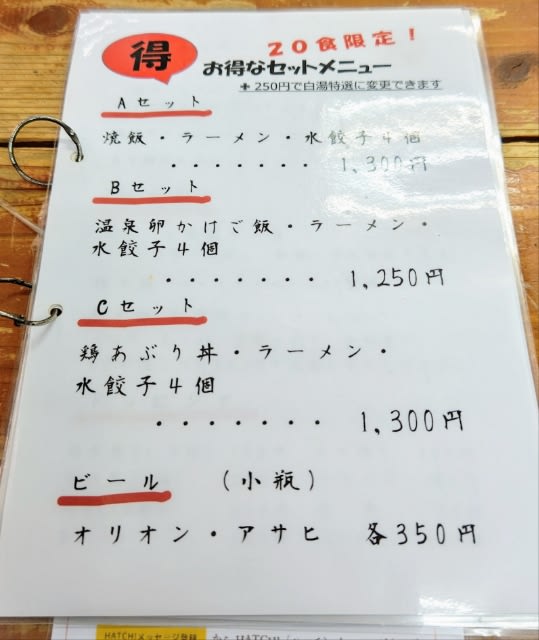 得
20食限定！
お得なセットメニュー
＋250円で白湯特選に変更できます
Aセット
焼飯・ラーメン・水餃子4個
・・・・・・・ 1,300円
Bセット
温泉卵かけご飯・ラーメン・
水餃子4個
・・・・・・・ 1,250円
Cセット
鶏あぶり丼・ラーメン・
水餃子4個
・・・・・・・ 1,300円
ビール （小瓶）
オリオン・アサヒ 各350円
HATCH!メッセージ登録